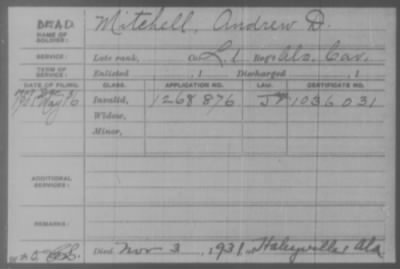 DEAD. Mitchell, Andrew D.
NAME OF SOLDIER:
SERVICE: Late rank, Co. L, 1 Reg't Ala. Cav.
TERM OF SERVICE: Enlisted , 1 Discharged , 1
DATE OF FILING. CLASS. APPLICATION NO. LAW. CERTIFICATE NO.
May Invalid, 1268876 1036031
Widow,
Minor,
ADDITIONAL SERVICES:
REMARKS:
Died Nov 3, 1931, Haleyville, Ala